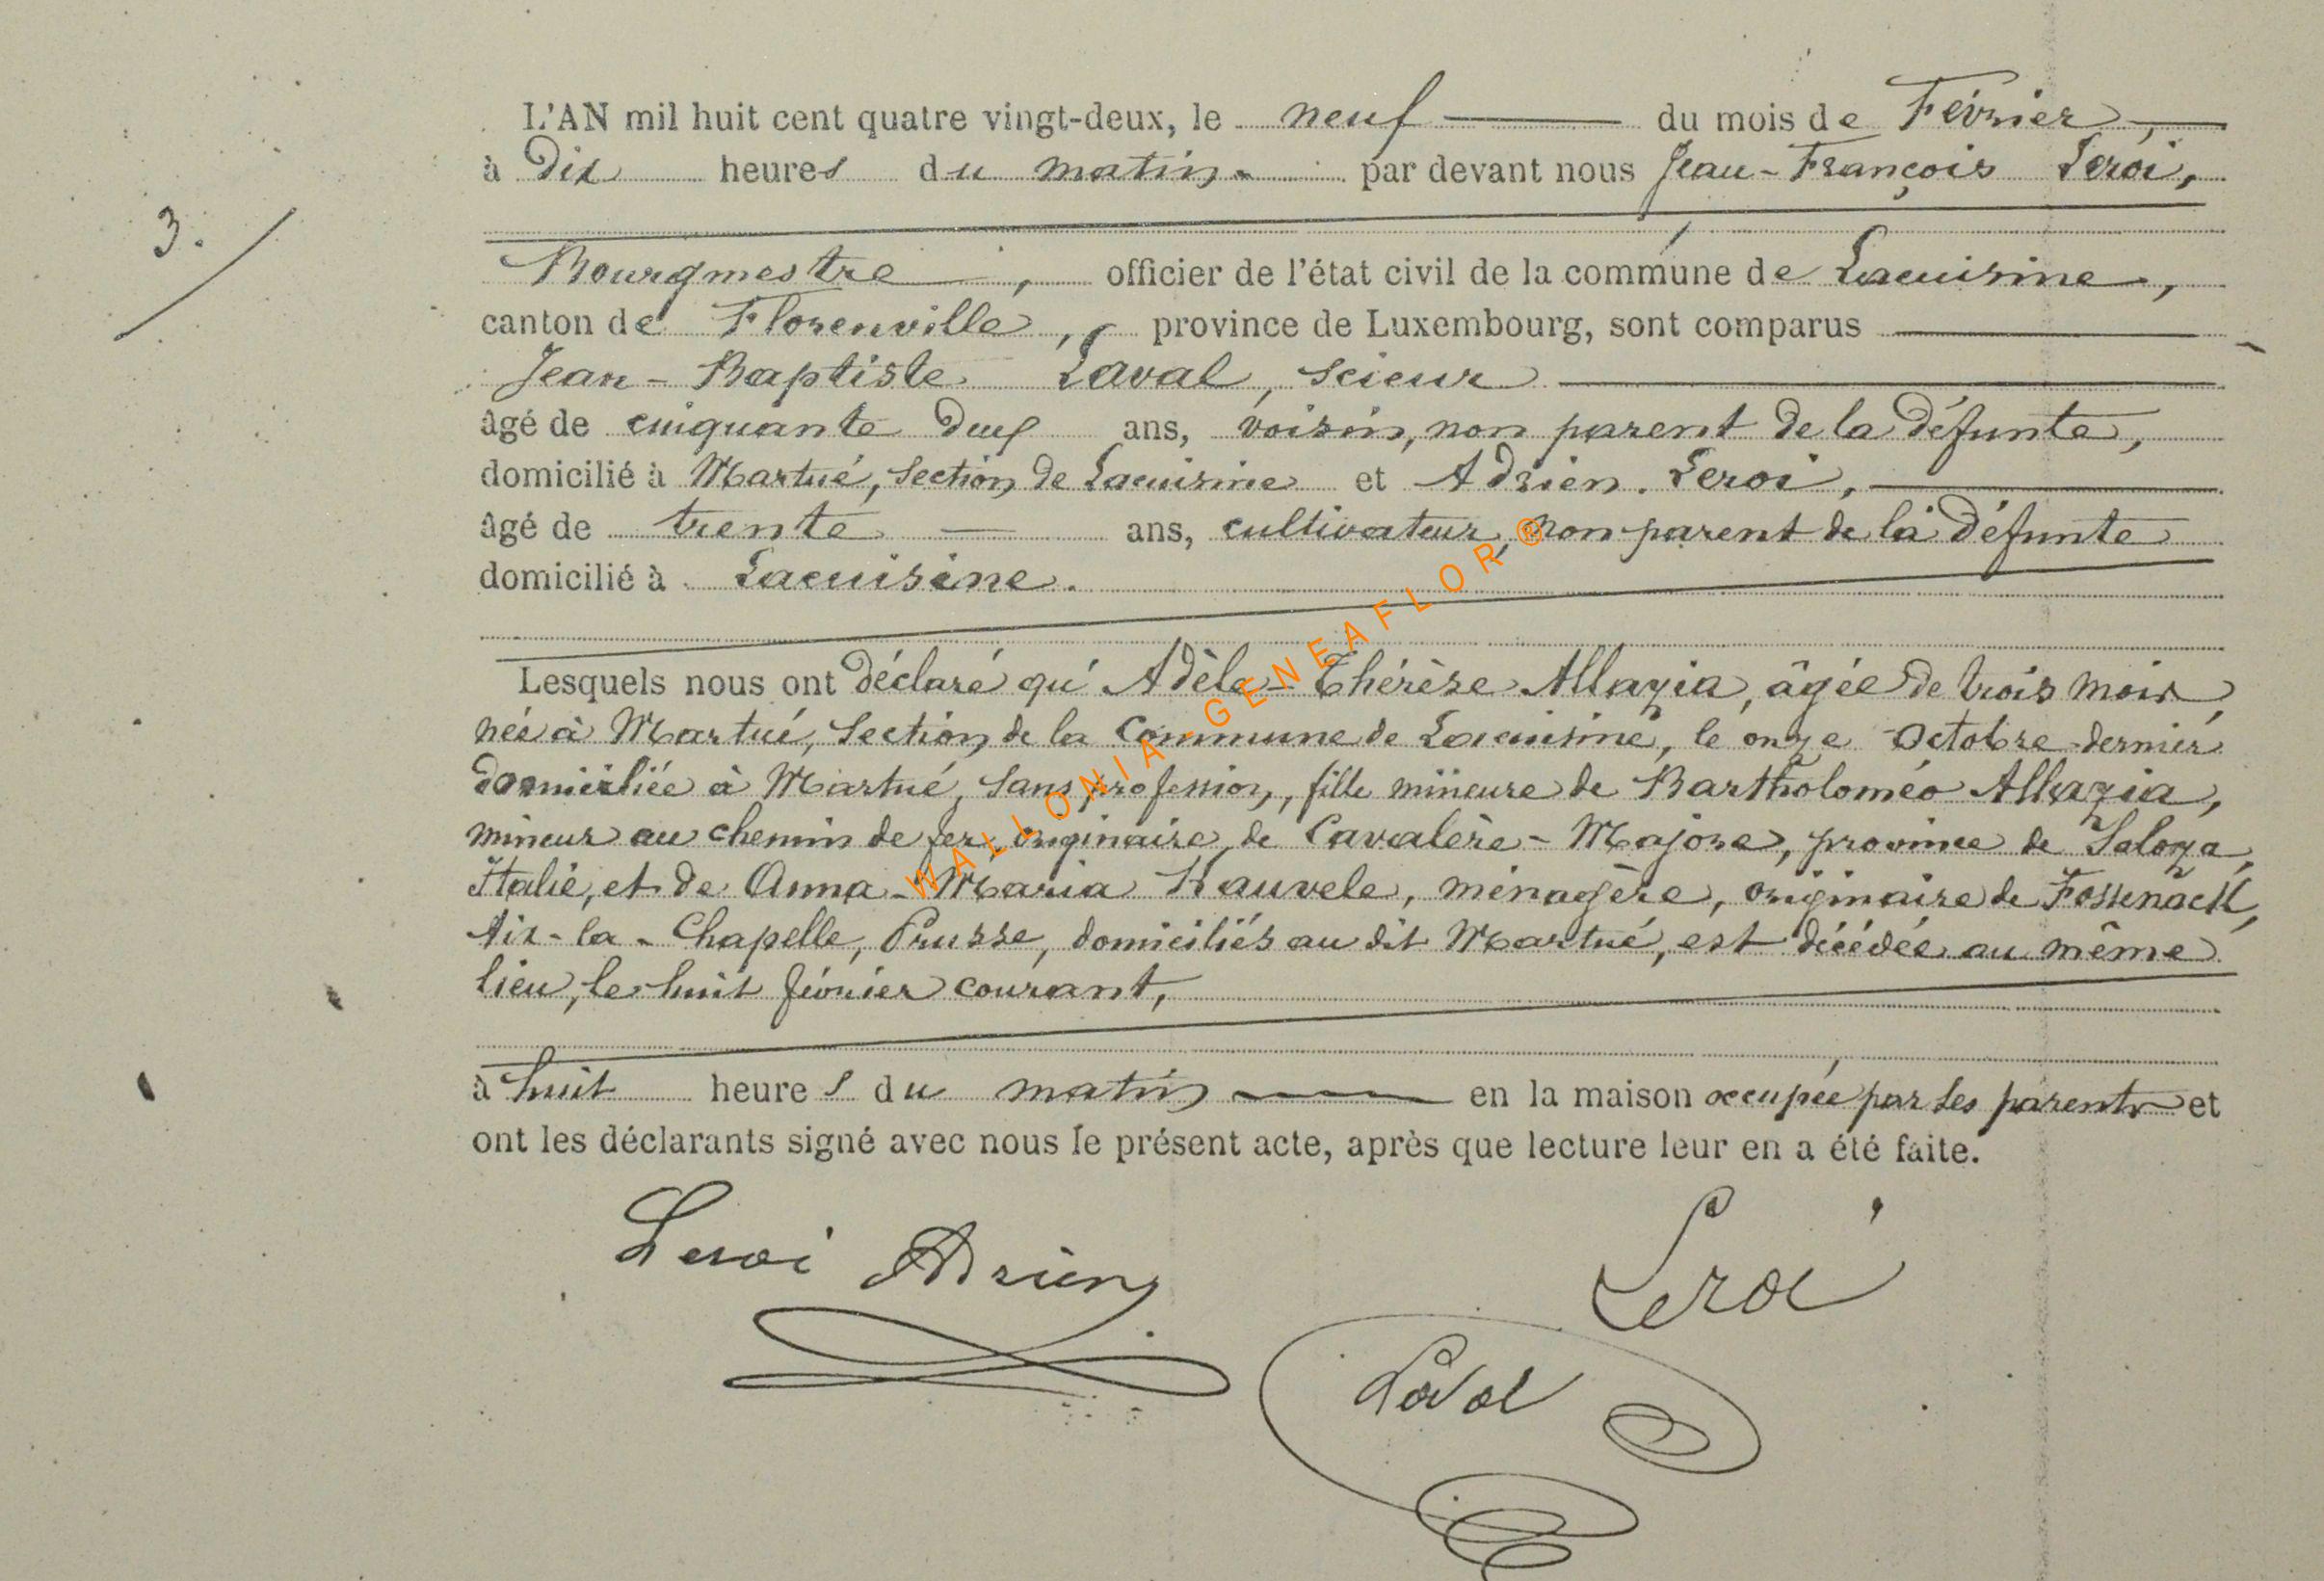 L'AN mil huit cent quatre vingt-deux, le neuf du mois de Février,
à Dix heures du matin. par devant nous Jean-François Leroi,
3.
Bourgmestre, officier de l'état civil de la commune de Lacuisine,
canton de Florenville, province de Luxembourg, sont comparus
Jean-Baptiste Laval, scieur
âgé de cinquante ans, voisin, non parent de la défunte,
domicilié à Martué, section de Lacuisine et Adrien Leroi,
âgé de trente ans, cultivateur, non parent de la défunte
domicilié à Lacuisine.
Lesquels nous ont déclaré qu'Adèle-Thérèse Allazia, âgée de trois mois,
née à Martué, section de la commune de Lacuisine, le onze Octobre dernier
domiciliée à Martué, sans profession, fille mineure de Bartholoméo Allazia,
mineur au chemin de fer, originaire de Cavalère-Majore, province de
Italie, et de Anna-Maria Kauvele, ménagère, originaire de Fossenack,
Aix-la-Chapelle, Prusse, domiciliés au dit Martué, est décédée au même
lieu, le huit février courant,
à huit heures du matin en la maison occupée par les parents et
ont les déclarants signé avec nous le présent acte, après que lecture leur en a été faite.
Leroi Adrien
Leroi
Laval
WALLONIA-GENEAFLOR®